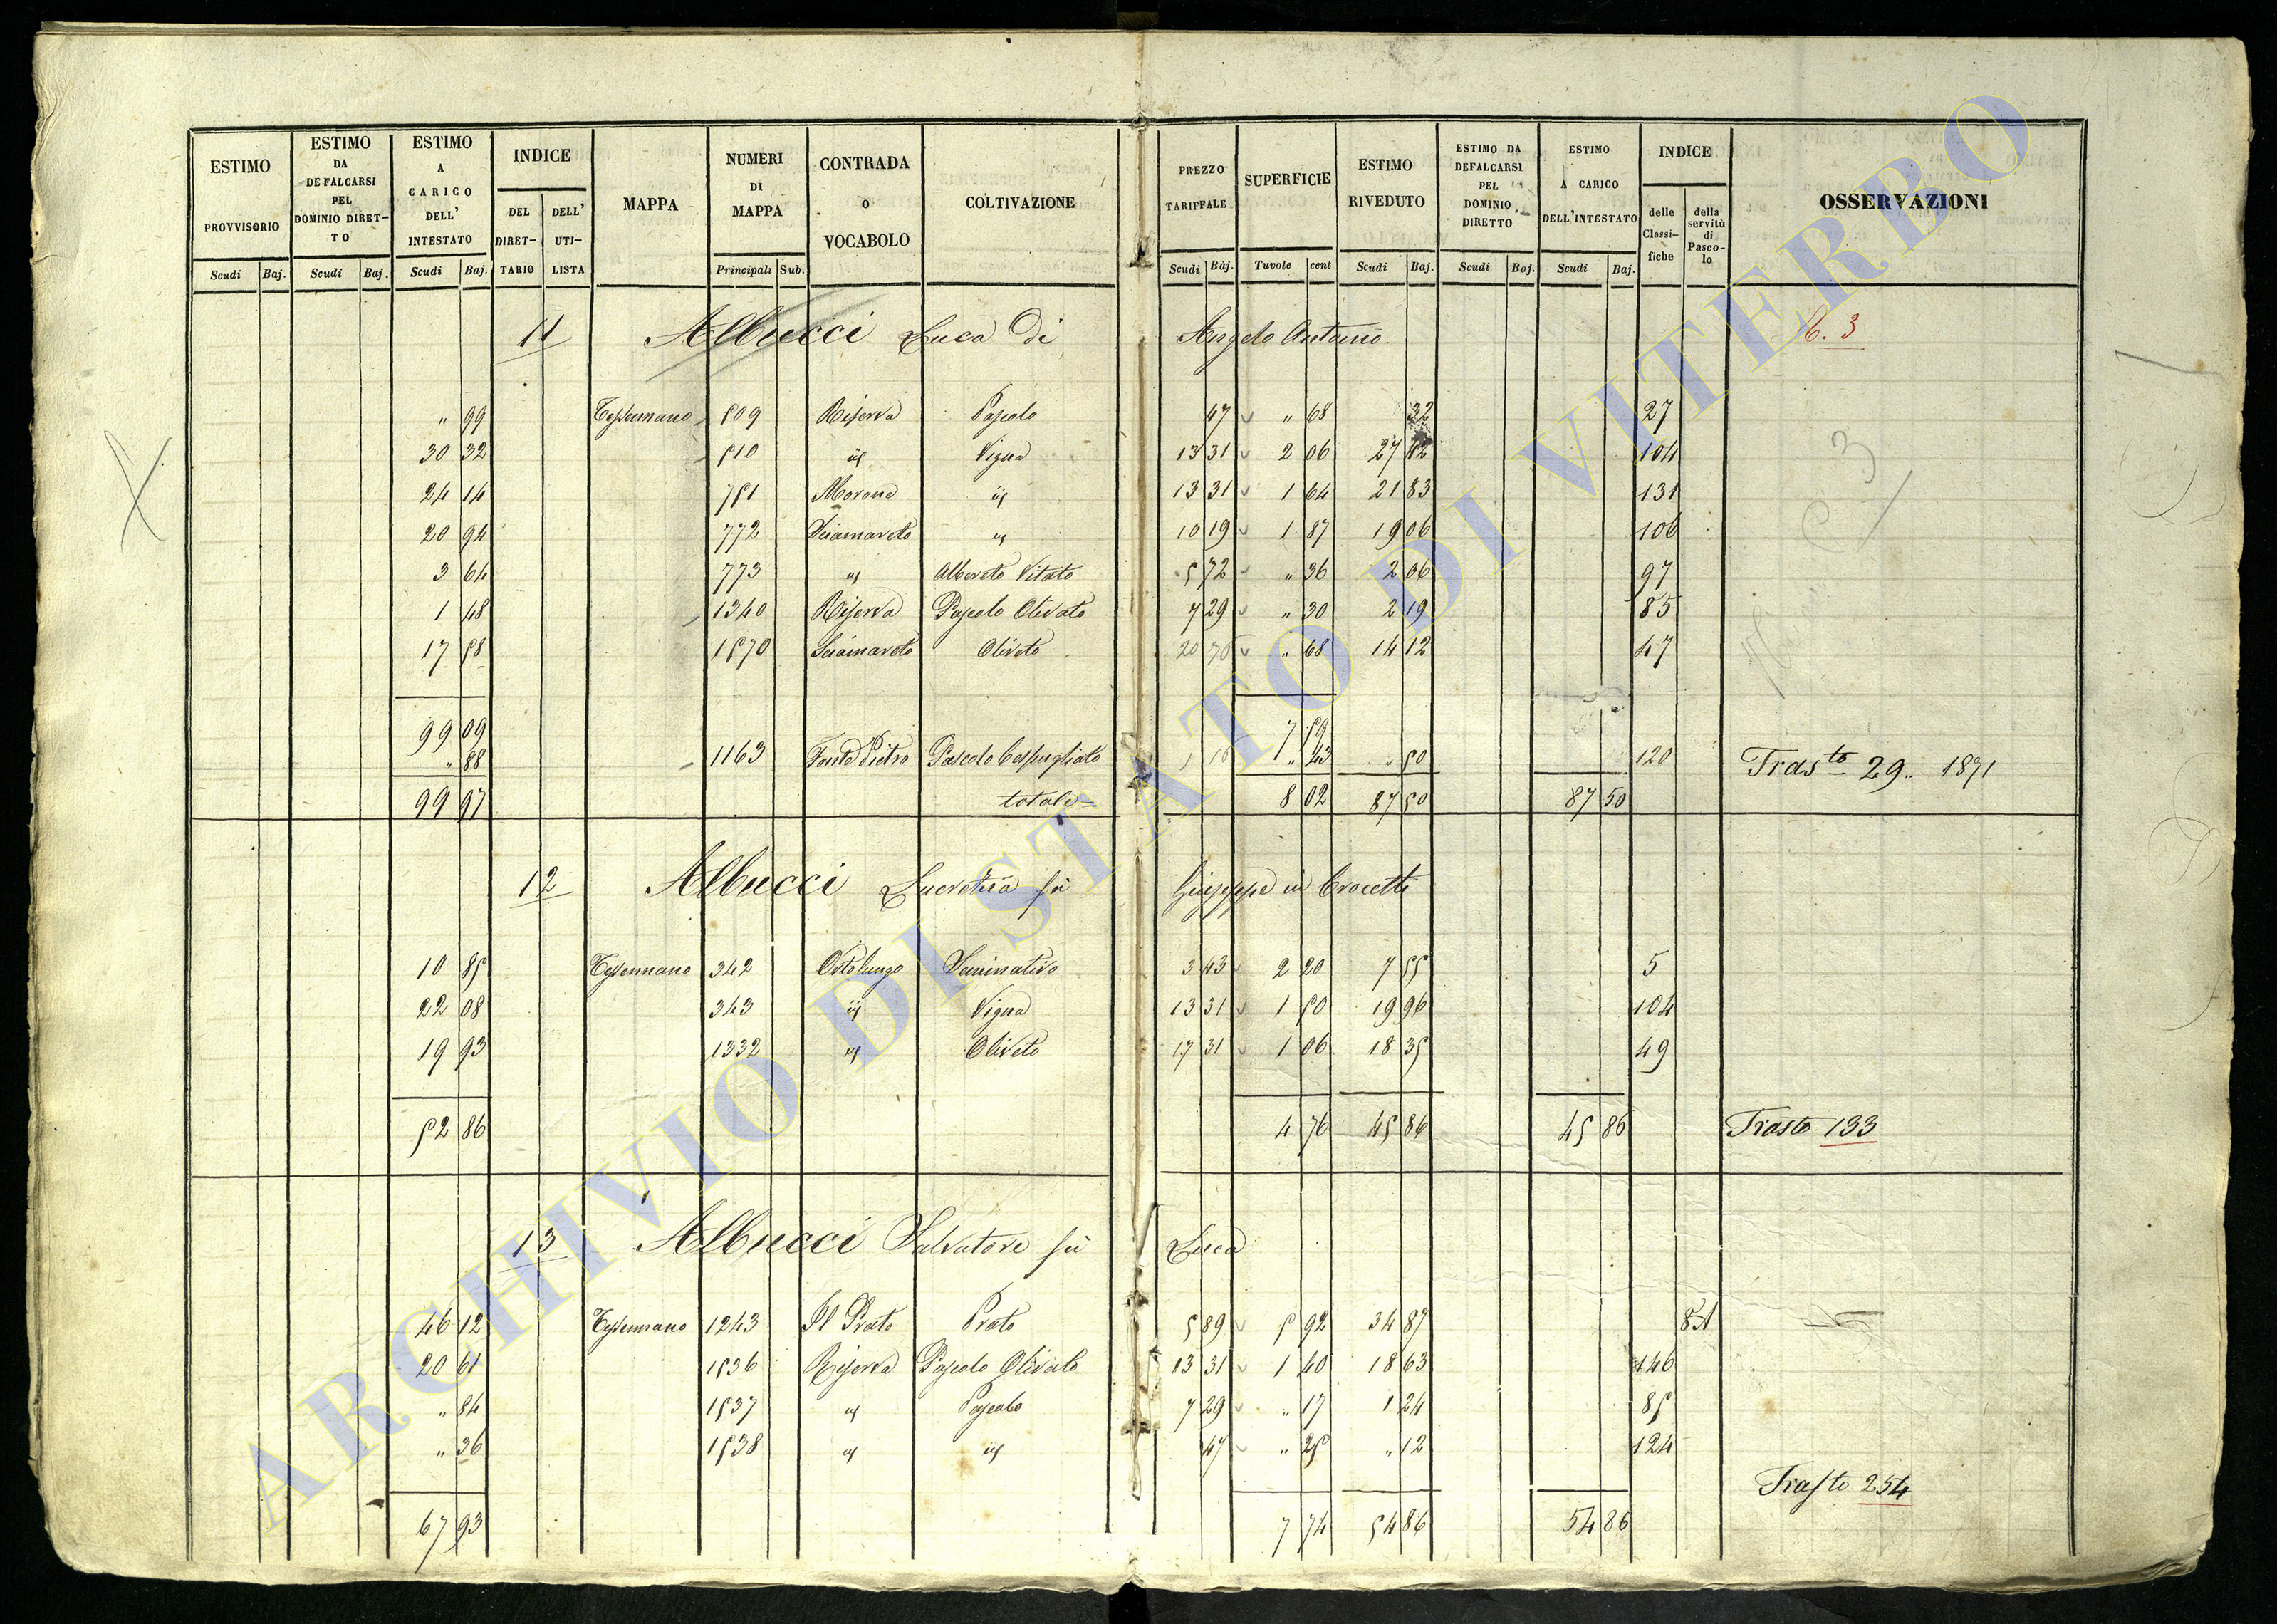 ESTIMO PROVVISORIO Scudi Baj.
ESTIMO DA DEFALCARSI PEL DOMINIO DIRET-TO Scudi Baj.
ESTIMO A CARICO DELL' INTESTATO Scudi Baj.
INDICE DEL DIRET-TARIO DELL' UTI-LISTA
MAPPA
NUMERI DI MAPPA Principali Sub.
CONTRADA O VOCABOLO
COLTIVAZIONE
PREZZO TARIFFALE Scudi Baj.
SUPERFICIE Tavole cent
ESTIMO RIVEDUTO Scudi Baj.
ESTIMO DA DEFALCARSI PEL DOMINIO DIRETTO Scudi Baj.
ESTIMO A CARICO DELL'INTESTATO Scudi Baj.
INDICE delle Classi-fiche della servitù di Pasco-lo
OSSERVAZIONI
11 Albucci Luca di Angelo Antonio 3
" 99 Tessennano 509 Riserva Pascolo 47 " 68 32 27
30 32 510 id Vigna 13 31 2 06 27 42 104
24 14 751 Morone id 13 31 1 64 21 83 131
20 94 772 Sciamareto id 10 19 1 87 19 06 106
3 64 773 id Albereto Vitato 5 72 " 36 2 06 97
1 48 1340 Riserva Pascolo Olivato 7 29 " 30 2 19 85
17 58 1570 Sciamareto Oliveto 20 76 " 68 14 12 47
99 09 7 59
" 88 1163 Fonte Pietro Pascolo Cespugliato 1 16 " 43 " 50 120 Trasto 29. 1871
99 97 totale= 8 02 87 50 87 50
12 Albucci Lucrezia fu Giuseppe in Crocetti
10 85 Tessennano 342 Ortolungo Seminativo 3 43 2 20 7 55 5
22 08 343 id Vigna 13 31 1 50 19 96 104
19 93 1332 id Oliveto 17 31 1 06 18 35 49
52 86 4 76 45 86 45 86 Trasto 133
13 Albucci Salvatore fu Luca
46 12 Tessennano 1243 Il Prato Prato 5 89 5 92 34 87 81
20 61 1536 Riserva Pascolo Olivato 13 31 1 40 18 63 146
" 84 1537 id Pascolo 7 29 " 17 1 24 85
" 36 1538 id id 47 " 25 " 12 124
Trasto 254
67 93 7 74 54 86 54 86
ARCHIVIO DI STATO DI VITERBO